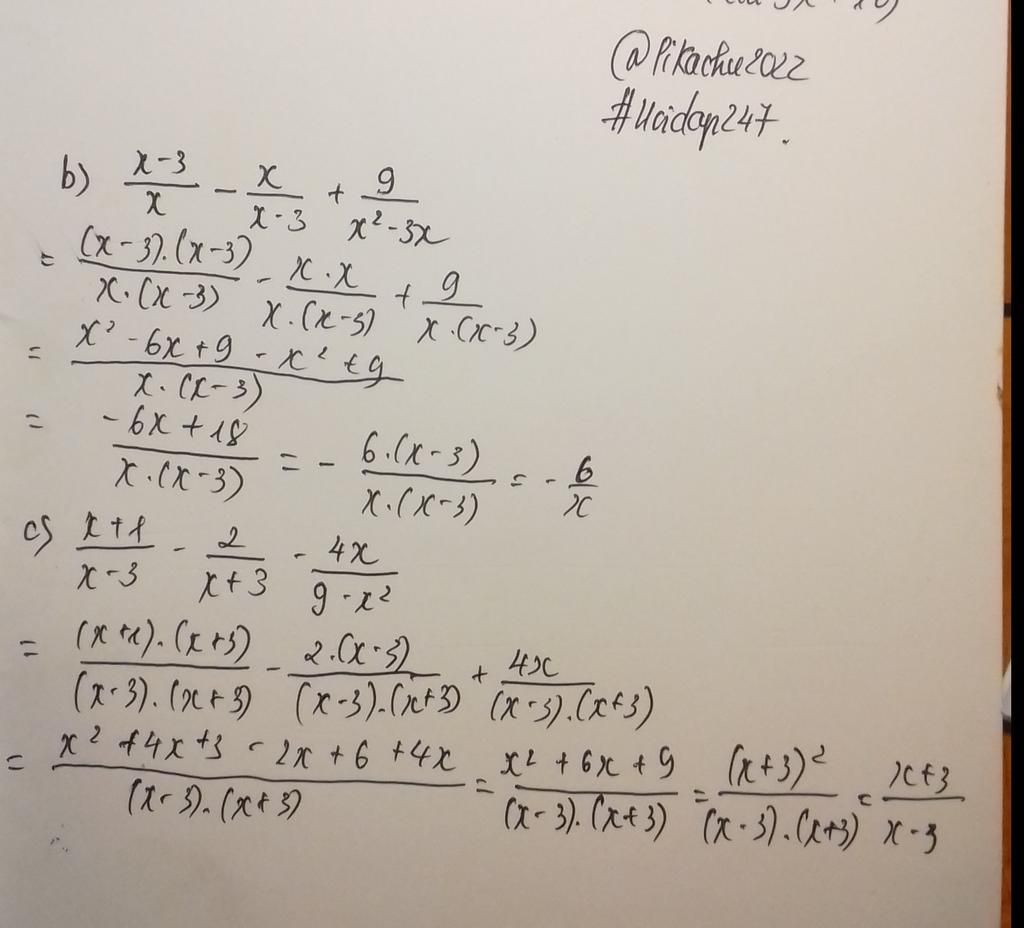 @Pikachu2022
#Hoidap247.
b) \frac{x-3}{x} - \frac{x}{x-3} + \frac{9}{x^2-3x}
= \frac{(x-3).(x-3)}{x.(x-3)} - \frac{x.x}{x.(x-3)} + \frac{9}{x.(x-3)}
= \frac{x^2-6x+9-x^2+9}{x.(x-3)}
= \frac{-6x+18}{x.(x-3)} = - \frac{6.(x-3)}{x.(x-3)} = - \frac{6}{x}
c) \frac{x+1}{x-3} - \frac{2}{x+3} - \frac{4x}{9-x^2}
= \frac{(x+1).(x+3)}{(x-3).(x+3)} - \frac{2.(x-3)}{(x-3).(x+3)} + \frac{4x}{(x-3).(x+3)}
= \frac{x^2+4x+3-2x+6+4x}{(x-3).(x+3)} = \frac{x^2+6x+9}{(x-3).(x+3)} = \frac{(x+3)^2}{(x-3).(x+3)} = \frac{x+3}{x-3}